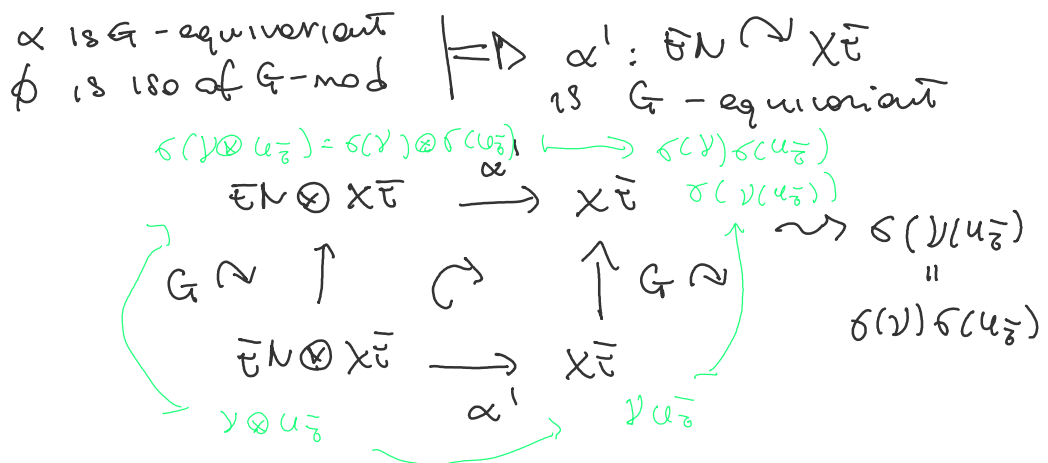 α is G-equivariant
ϕ is iso of G-mod
⊨▷ α' : t̄N ↷ Xτ̄
is G-equivariant
σ(γ⊗u_z̄) = σ(γ)⊗σ(u_z̄) ⟼ σ(γ)σ(u_z̄)
t̄N ⊗ Xτ̄ →^{α'} Xτ̄
σ(ν(u_z̄))
⇝ σ(ν(u_z̄)
=
σ(ν)σ(u_z̄)
G ↷ ↑ ↻ ↑ G ↷
t̄N ⊗ Xτ̄ →_{α'} Xτ̄
γ⊗u_z̄
γu_z̄